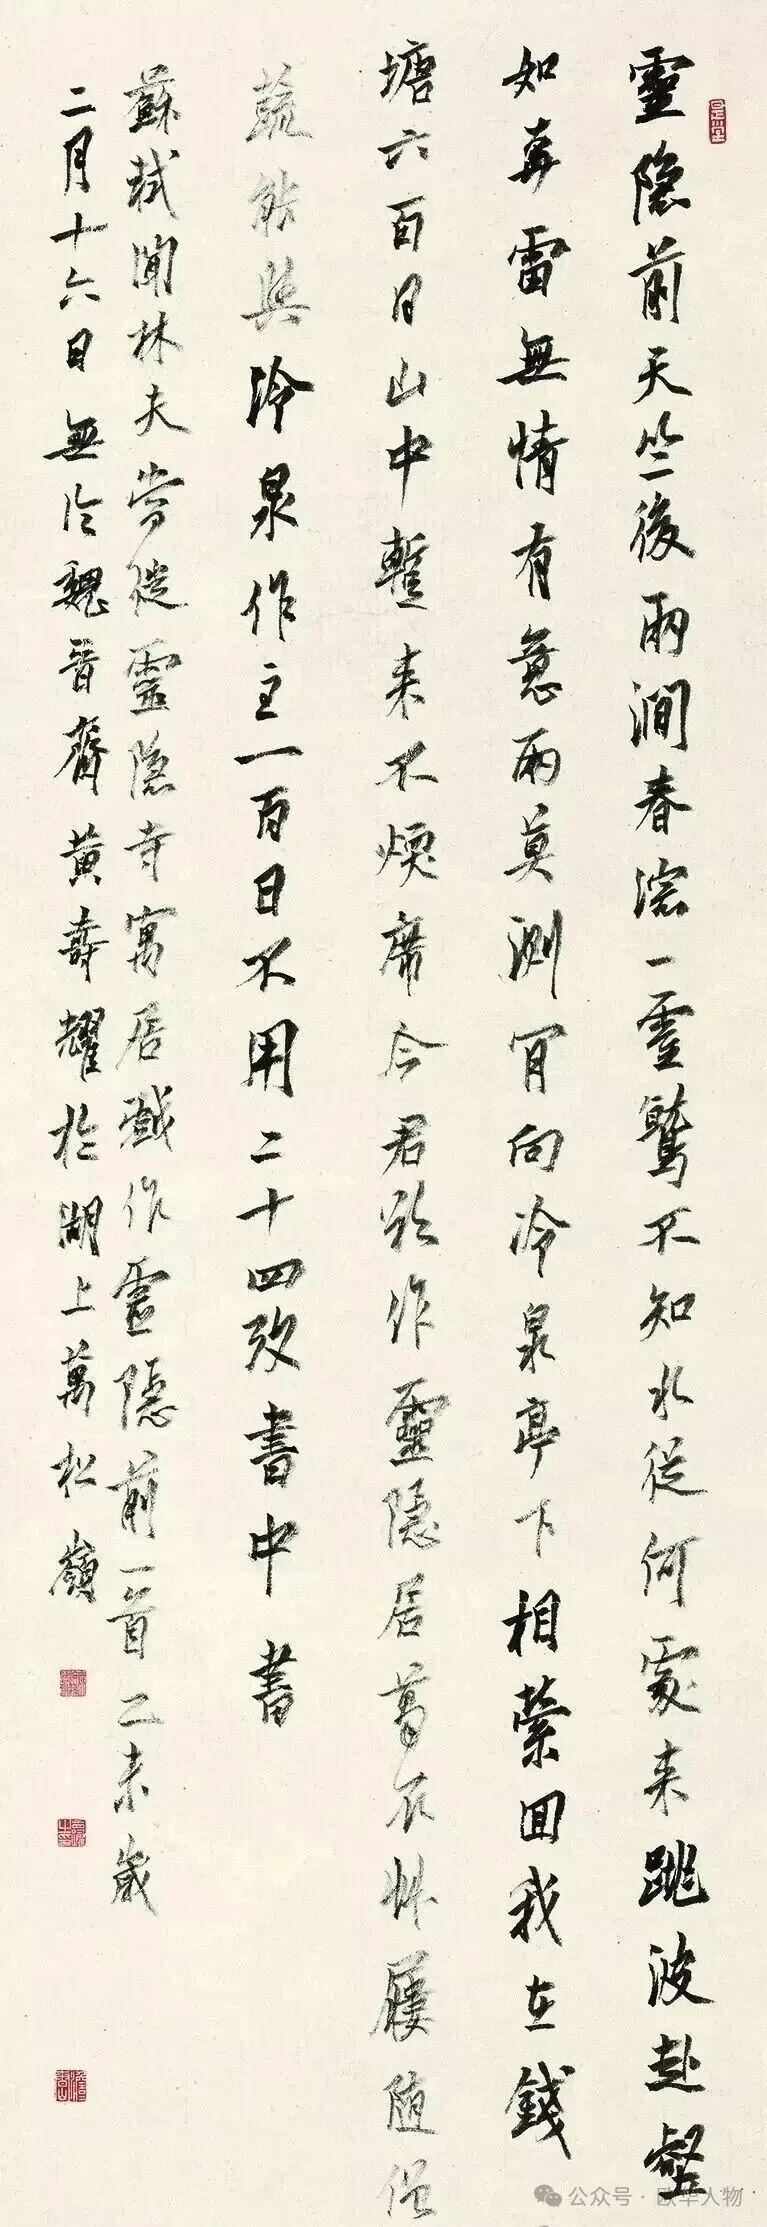 靈隐前天竺後兩澗春淙一靈鷲不知水從何處来跳波赴壑
如奔雷無情有意兩莫測肯向冷泉亭下相縈回我在錢
塘六百日山中暫来不煖席今君欲作靈隱居葛衣草屨隨僧
蔬能與冷泉作主一百日不用二十四攷書中書
蘇軾聞林夫當從靈隐寺寓居戲作靈隱前一首乙未歲
二月十六日無論魏晉齋黃壽耀於湖上萬松嶺
公众号 · 欧华人物